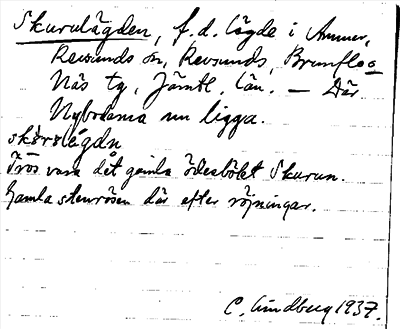 Skurulägden, f.d. lägde i Anner,
Revsunds sn, Revsunds, Brunflo o
Näs tg, Jämtl. län. — Där
Nybodarna nu ligga.
skørølégdn
Tros vara det gamla ödesbölet Skurun.
Gamla stenrösen där efter röjningar.
C. Lindberg 1937.